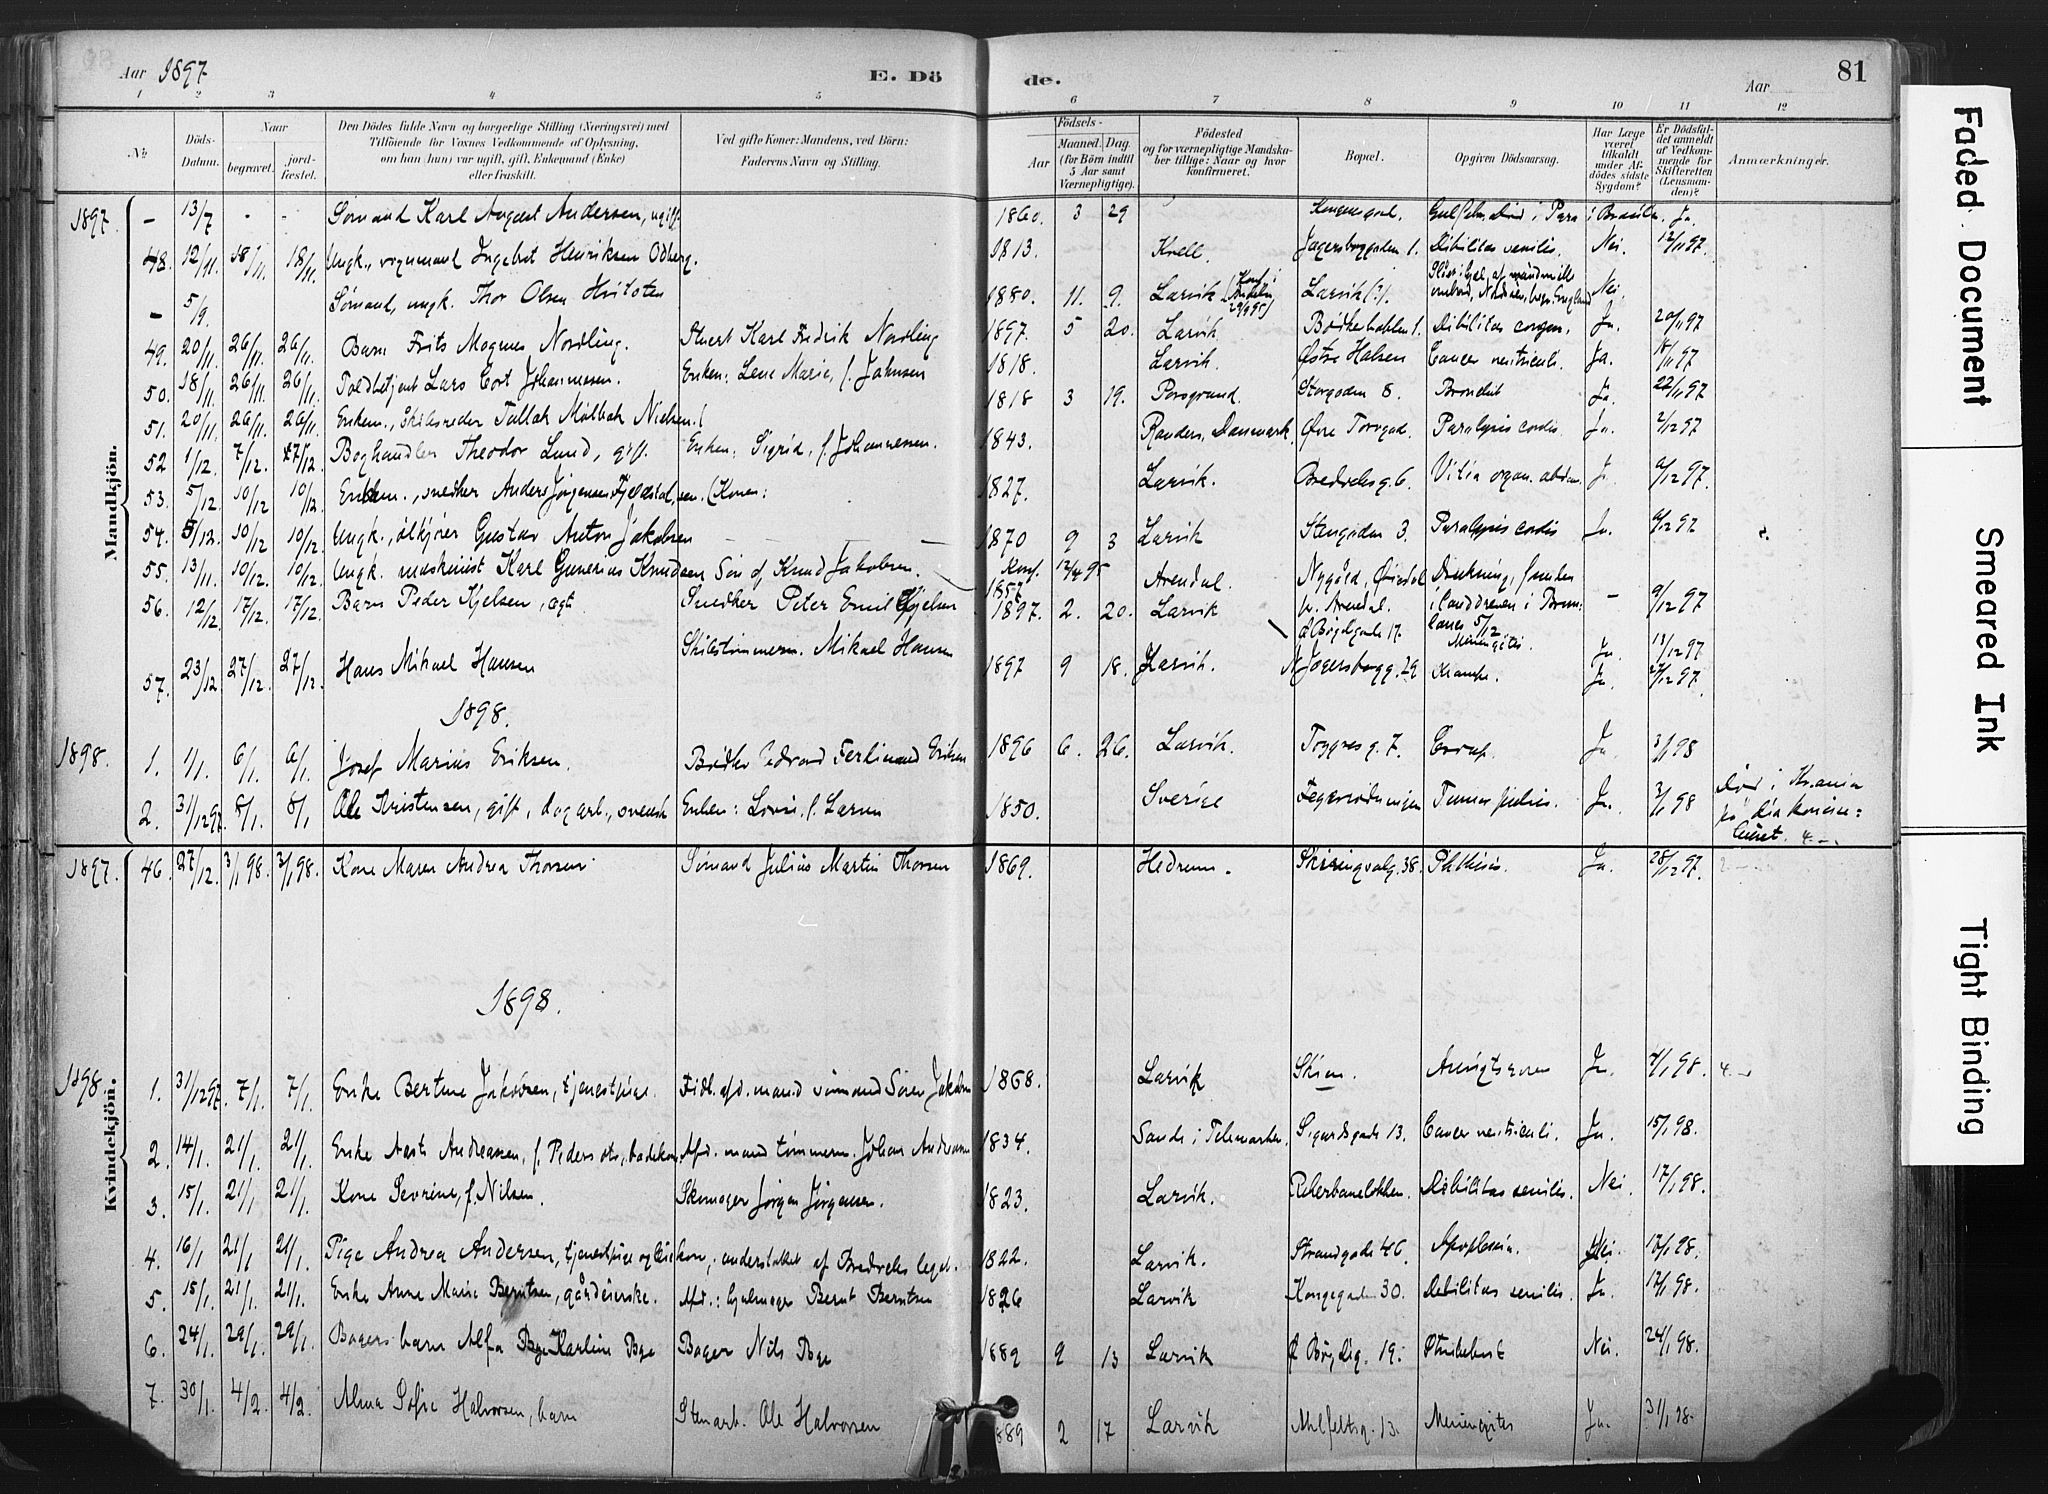 Aar 1897 E. Dö de. Aar 81
1 2 3 4 5 6 7 8 9 10 11 12
No. Döds-Datum. Naar begravet. jord-fæstet. Den Dödes fulde Navn og borgerlige Stilling (Næringsvei) med Tilföiende for Voxnes Vedkommende af Oplysning, om han (hun) var ugift, gift, Enkemand (Enke) eller fraskilt. Ved gifte Koner: Mandens, ved Börn: Faderens Navn og Stilling. Födsels- Aar Maaned. Dag. (for Börn indtil 5 Aar samt Værnepligtige). Födested og for værnepligtige Mandskaber tillige: Naar og hvor konfirmeret. Bopæl. Opgiven Dödsaarsag. Har Læge været tilkaldt under Afdödes sidste Sygdom? Er Dödsfaldet anmeldt af Vedkommende for Skifteretten (Lensmanden)? Anmærkninger.
Mandkjön.
1897. - 13/7 - - Sømand Karl August Andersen, ugift 1860. 3 29 Kongensgad. Gul feber. Död i Para i Brasili. Ja
48. 12/11. 18/11. 18/11. Ungk., vognmand Ingebret Henriksen Odberg. 1813. Kvell. Jegersborggaden 1. Debilitas senilis. Nei. 12/11 97.
- 5/9. Sømand, ungk. Thor Olsen Hvitsten 1880. 11. 9. Larvik Larvik (?). Nei.
49. 20/11. 26/11. 26/11. Barn Frits Magnus Nordling. Stuert Karl Fredrik Nordling 1897. 5 20. Larvik. Debilitas congen. Ja. 20/11 97
50. 18/11. 26/11. 26/11. Toldbetjent Lars Cort Johannesen. Enken: Lene Marie, f. Jahnsen 1818. Larvik. Østre Halsen Cancer ventriculi. Ja. 18/11 97
51. 20/11. 26/11. 26/11. Enkem., skibsreder Tallak Mølbak Nielsen. 1818 3 19. Porsgrund. Storgaden 8. Bronchit Ja. 22/11 97
52 1/12. 7/12. 7/12. Boghandler Theodor Lund, gift. Enken: Sigrid, f. Johannessen. 1843. Randers, Danmark. Øvre Torvgad. Paralysis cordis Ja. 2/12 97
53. 5/12. 10/12 10/12 Enkem., snedker Anders Jørgensen (Konen: 1827. Larvik. Bredrchsg. 6. Vitia organ. abdom. J. 6/12 97.
54. 5/12. 10/12 10/12 Ungk., ølkjører Gustav Anton Jakobsen 1870 9 3 Larvik Stengaden 3. Paralysis cordis Ja. 6/12 97
55. 13/11. 10/12. 10/12. Ungk. maskinist Karl Gunerius Knudsen Søn af Knud Jakobsen. 1857 Arendal. pr. Arendal. Drukning, funden - 9/12 97
56. 12/12. 17/12. 17/12. Barn Peder Kjelsen, ægt. Snedker Peter Emil Kjelsen 1897. 2. 20. Larvik Ø Bøgelgade 17. Meningitis. Ja. 13/12 97
57. 23/12 27/12. 27/12. Hans Mikael Hansen Skibstømmerm. Mikael Hansen 1897 9 18. Larvik. N Jegersborgg. 29 Krampe. Ja. 27/12 97.
1898.
1898. 1. 1/1. 6/1 6/1. Josef Marius Eriksen. Bødker Edvard Ferdinand Eriksen 1896 6. 26. Larvik. Torggres g. 7. Croup. Ja 3/1 98
2. 31/12 97. 8/1. 8/1 Ole Kristensen, gift, dagarb., svensk Enken: Lovis. f. Larsen 1850. Sverige Ja. 3/1 98 Död i Kr.ania på diakonisse= huset. 4
Kvindekjön.
1897. 46. 27/12. 3/1 98. 3/1 98. Kone Maren Andrea Thorsen Sømand Julius Martin Thorsen 1869. Hedrum. Skiringsalg. 38. Phthisis. Ja. 28/12 97.
1898.
1898 1. 31/12 97. 7/1. 7/1. Enke Bertine Jakobsen, tjenestpige. Fhv. afd. mand sømand Søren Jakobsen 1868. Larvik Skien. Ja. 4/1 98. 4
2. 14/1. 21/1. 21/1. Enke Aaste Andreassen, f. Pedersdtr, badekone Afd. mand tømmerm. Johan Andreasen 1834. Sande i Telemarken. Sigurdsgade 13. Cancer ventriculi. Ja. 15/1 98.
3. 15/1. 21/1. 21/1. Kone Severine, f. Nilsen. Skomager Jørgen Jørgensen. 1823. Larvik. Reberbaneløkken. Debilitas senilis. Nei. 17/1 98.
4. 16/1 21/1 21/1. Pige Andrea Andersen, tjenestpige understøttet af Bredrchs legat. 1822. Larvik. Strandgade 46. Apoplexia. Nei. 17/1 98.
5. 15/1. 21/1. 21/1. Enke Anne Marie Berntsen, gårdeierske. Afd.: hjulmager Bernt Berntsen 1826 Larvik Kongegaden 30. Debilitas senilis. Ja. 17/1 98.
6. 24/1. 29/1. 29/1. Bagers barn Alfa Karline Bøge Bager Nils Bøge 1889 9 13 Larvik 19. Nei. 24/1 98.
7. 30/1. 4/2. 4/2. Alma Sofie Halvorsen, barn Stenarb. Ole Halvorsen 1889 2 17 Larvik Ahlfeltsg. 13. Meningitis Ja. 31/1 98.
Faded Document
Smeared Ink
Tight Binding